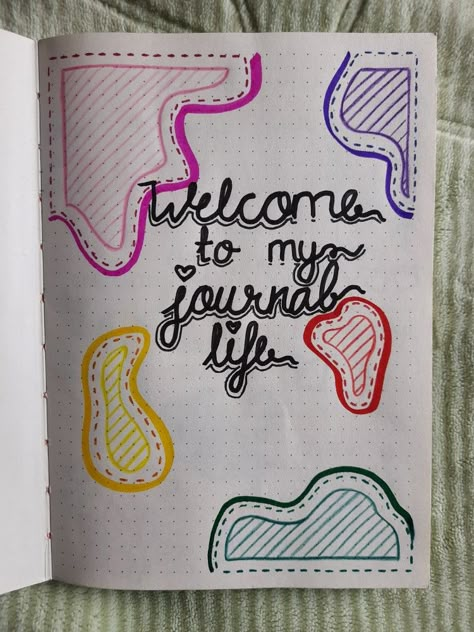 Welcome
to my
journal
life